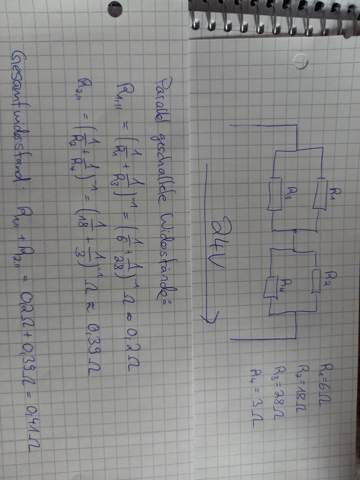 R₁ = 6Ω
R₂ = 18Ω
R₃ = 28Ω
R₄ = 3Ω
R₁
R₂
R₃
R₄
24V
Parallel geschaltete Widerstände:
R₁,₁₁ = (1/R₁ + 1/R₃)⁻¹ = (1/6 + 1/28)⁻¹ Ω ≈ 0,2Ω
R₂,₁₁ = (1/R₂ + 1/R₄)⁻¹ = (1/18 + 1/3)⁻¹ Ω ≈ 0,39Ω
Gesamtwiderstand R₁,₁₁ + R₂,₁₁ = 0,2Ω + 0,39Ω = 0,41Ω